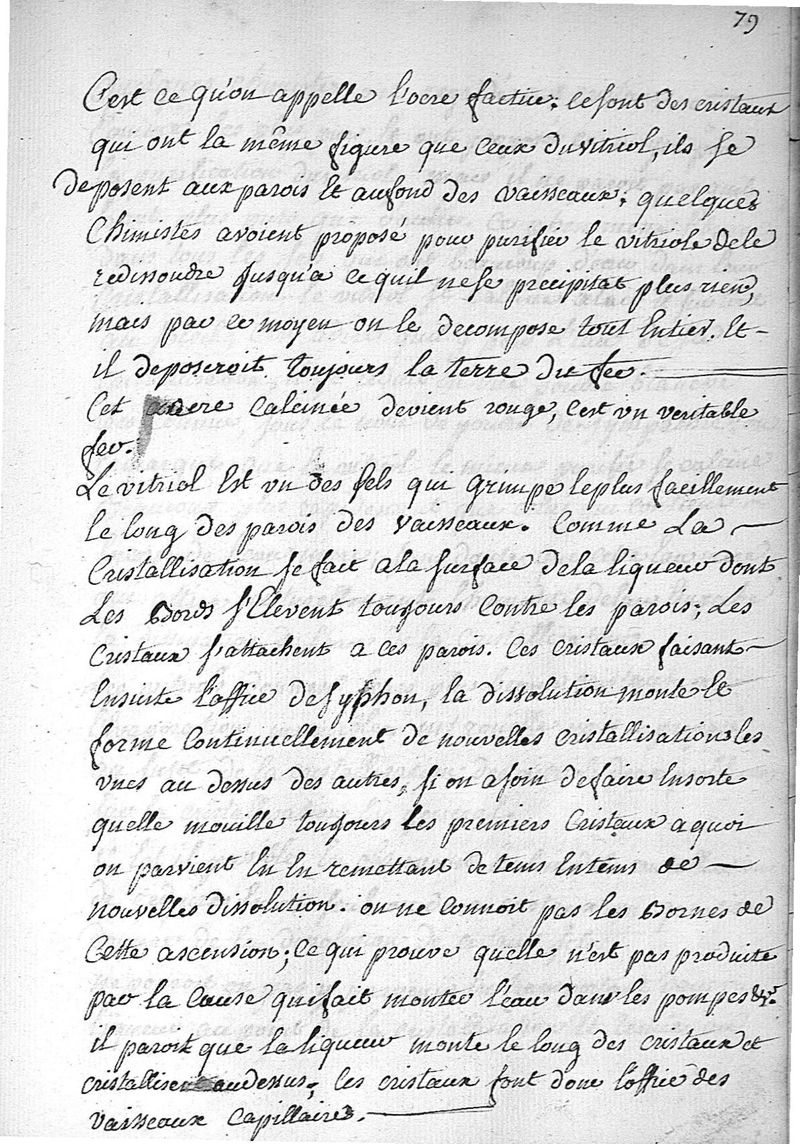 79
C'est ce qu'on appelle l'ocre factice; ce sont des cristaux
qui ont la même figure que ceux du vitriol, ils se
deposent aux parois et au fond des vaisseaux; quelques
Chimistes avoient proposé pour purifier le vitriole de le
redissoudre jusqu'a ce quil ne se precipitat plus rien,
mais par ce moyen on le decompose tout entier. Et
il deposeroit toujours la terre du fer.
Cet ocre calcinée devient rouge, c'est un veritable
fer.
Le vitriol Est un des sels qui grimpe le plus facillement
le long des parois des vaisseaux. Comme La
Cristallisation se fait a la surface de la liqueur dont
Les Bords s'Elevent toujours contre les parois; Les
Cristaux s'attachent a ces parois. Ces cristaux faisant
Ensuite l'office de syphon, la dissolution monte Et
forme continuellement de nouvelles cristallisations les
unes au dessus des autres, si on a soin de faire Ensorte
quelle mouille toujours les premiers Cristaux a quoi
on parvient En En remettant de tems En tems de
nouvelles dissolution. on ne connoit pas les Bornes de
Cette ascension; ce qui prouve quelle n'est pas produite
par la cause qui fait monter l'eau dans les pompes &c.
il paroit que la liqueur monte le long des cristaux et
cristallise au dessus; ces cristaux font donc l'office des
vaisseaux capillaires.